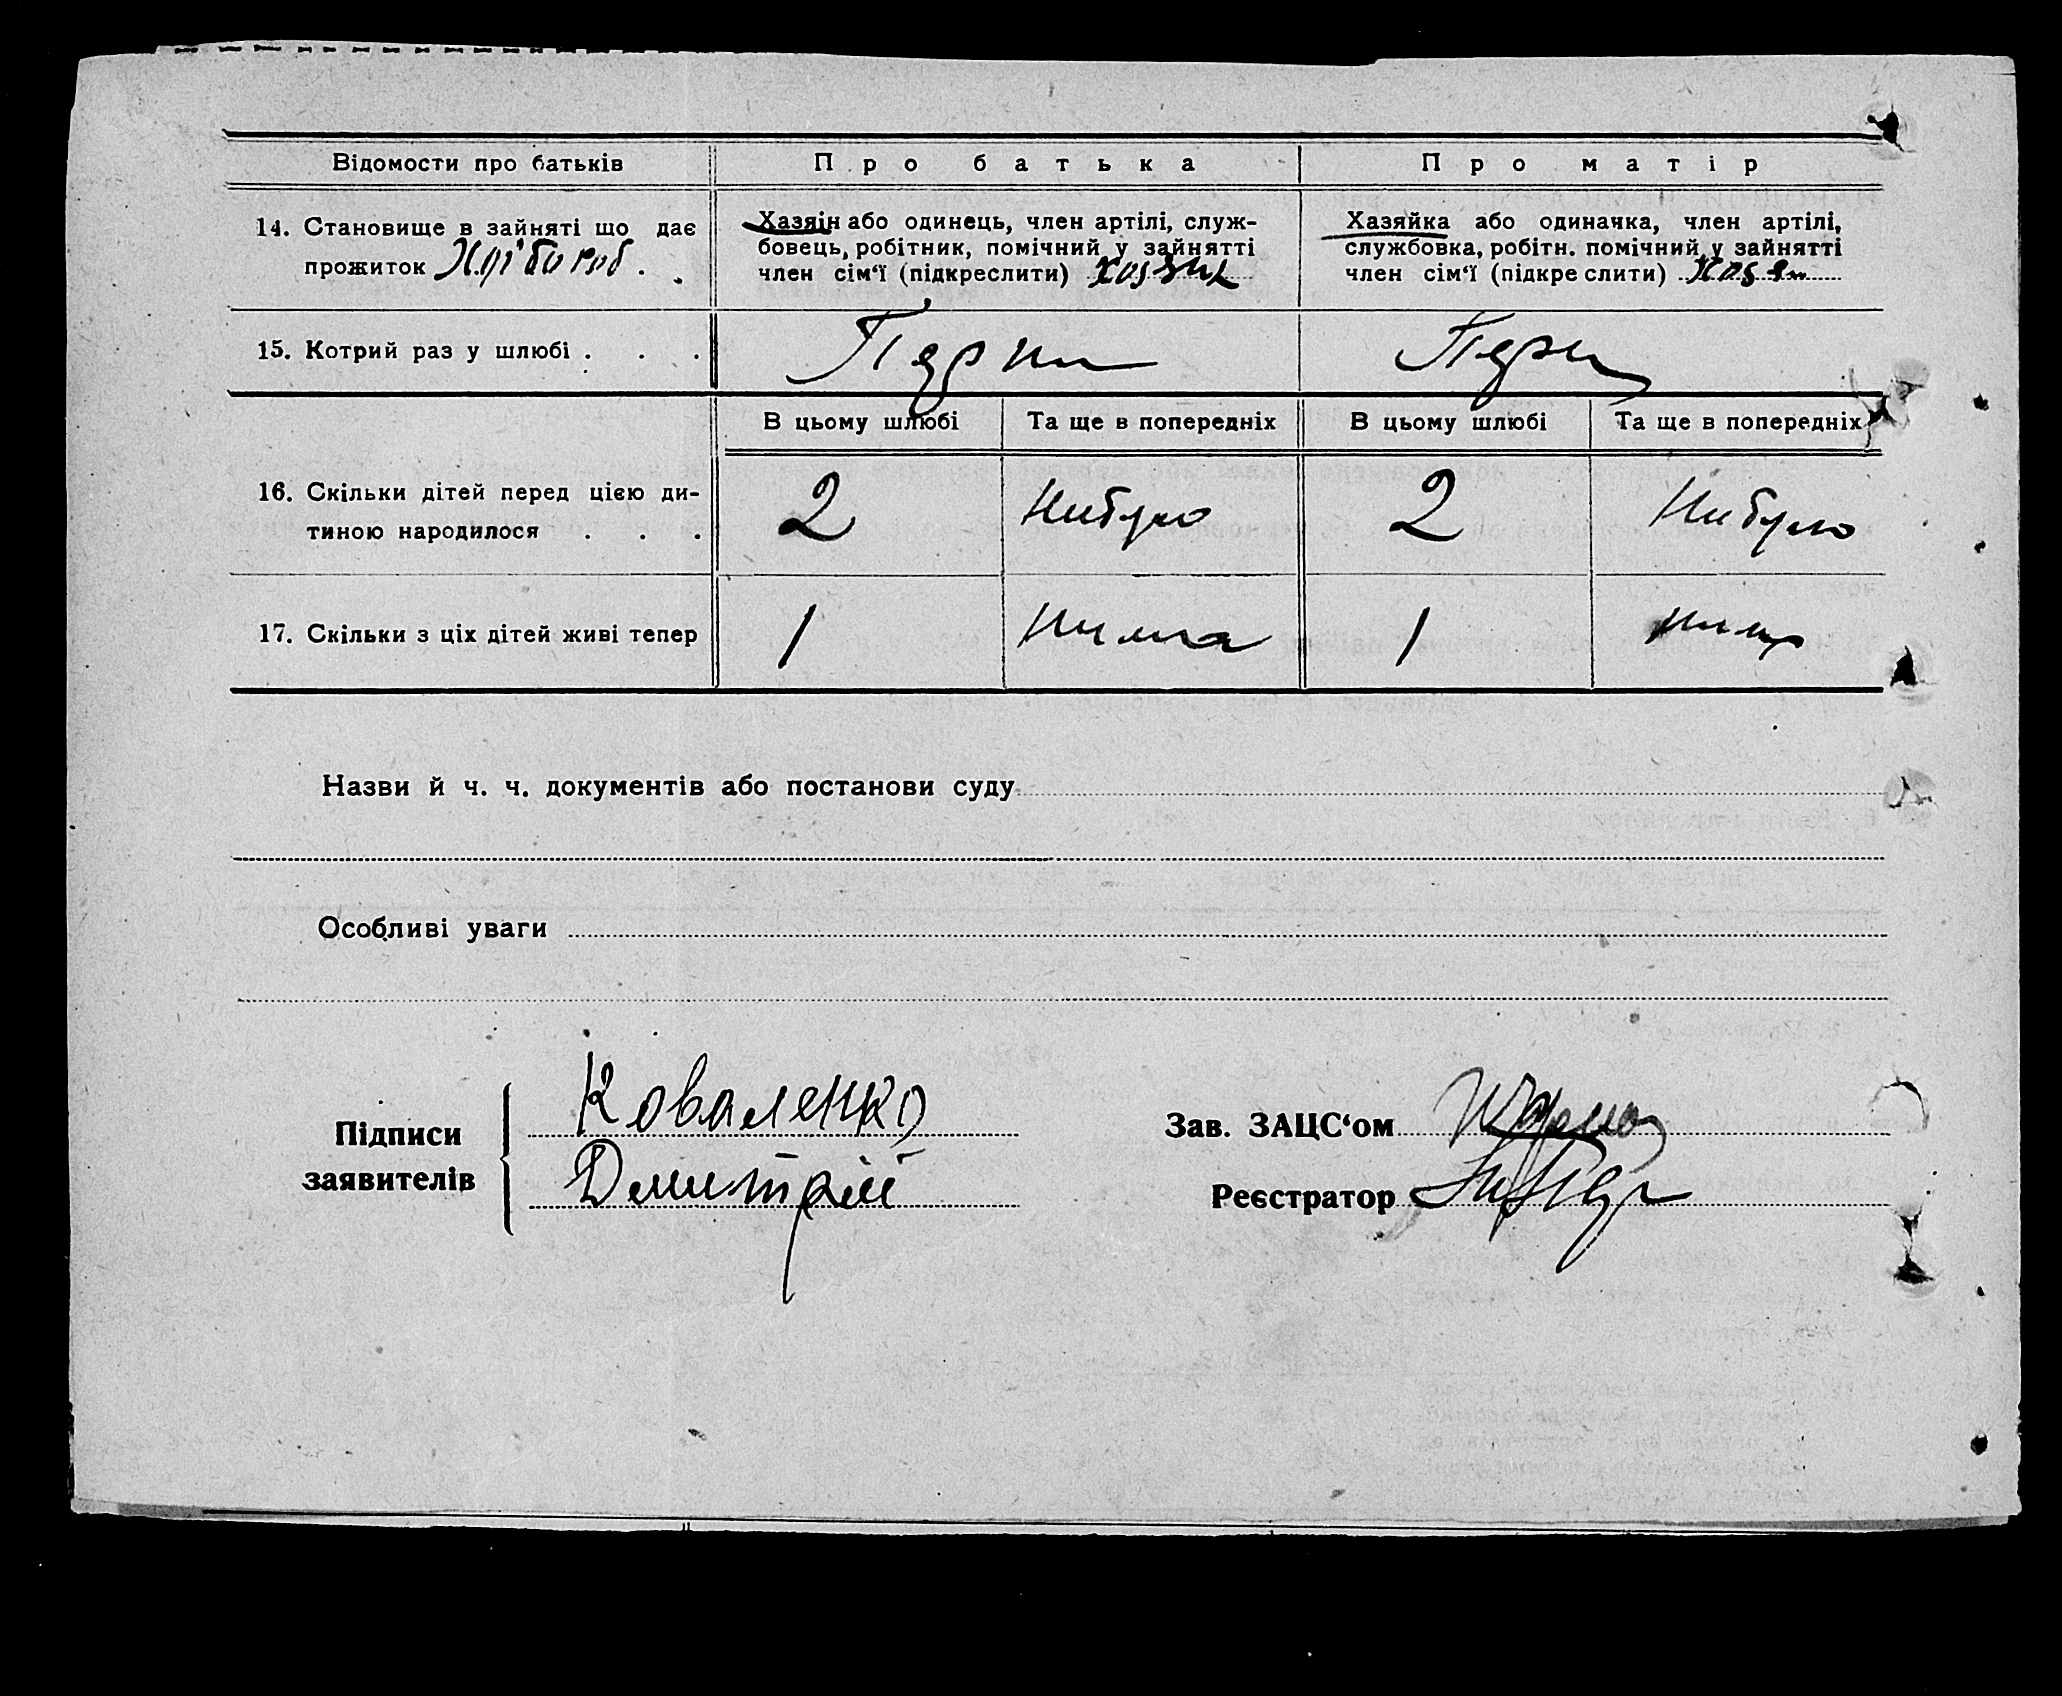 Відомости про батьків
Про батька
Про матір
14. Становище в зайняті що дає
прожиток Хлібороб.
Хазяін або одинець, член артілі, служ-
бовець, робітник, помічний у зайнятті
член сім'ї (підкреслити)
Хазяйка або одиначка, член артілі,
службовка, робітн. помічний у зайнятті
член сім'ї (підкре слити)
15. Котрий раз у шлюбі . . .
В цьому шлюбі
Та ще в попередніх
В цьому шлюбі
Та ще в попередніх
16. Скільки дітей перед цією ди-
тиною народилося . . .
2
Нибуло
2
Нибуло
17. Скільки з ціх дітей живі тепер
1
Нима
1
Нима
Назви й ч. ч. документів або постанови суду
Особливі уваги
Підписи
заявителів
Коваленко
Дмитрій
Зав. ЗАЦС'ом
Реєстратор